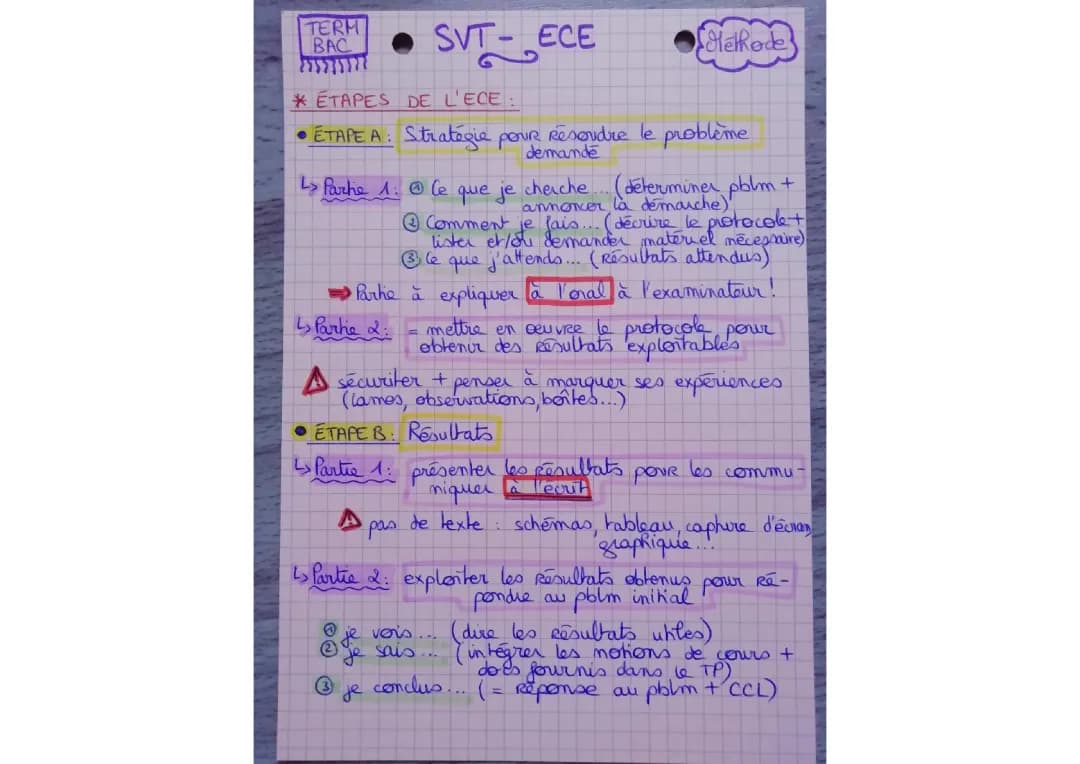 TERM
BAC
SVT - ECE
Méthode
* ÉTAPES DE L'ECE :
• ÉTAPE A : Stratégie pour résoudre le problème
demandé
↳ Partie 1 : ① Ce que je cherche... (déterminer pblm +
annoncer la démarche)
② Comment je fais... (décrire le protocole +
lister et/ou demander matériel nécessaire)
③ Ce que j'attends... (Résultats attendus)
➡ Partie à expliquer à l'oral à l'examinateur !
↳ Partie 2 : = mettre en oeuvre le protocole pour
obtenir des résultats exploitables
⚠ sécuriter + penser à marquer ses expériences
(lames, observations, boîtes...)
• ÉTAPE B : Résultats
↳ Partie 1 : présenter les résultats pour les commu-
niquer à l'écrit
⚠ pas de texte : schémas, tableau, capture d'écran,
graphique...
↳ Partie 2 : exploiter les résultats obtenus pour ré-
pondre au pblm initial
① je vois... (dire les résultats utiles)
② je sais... (intégrer les notions de cours +
docs fournis dans le TP)
③ je conclus... (= Réponse au pblm + CCL)